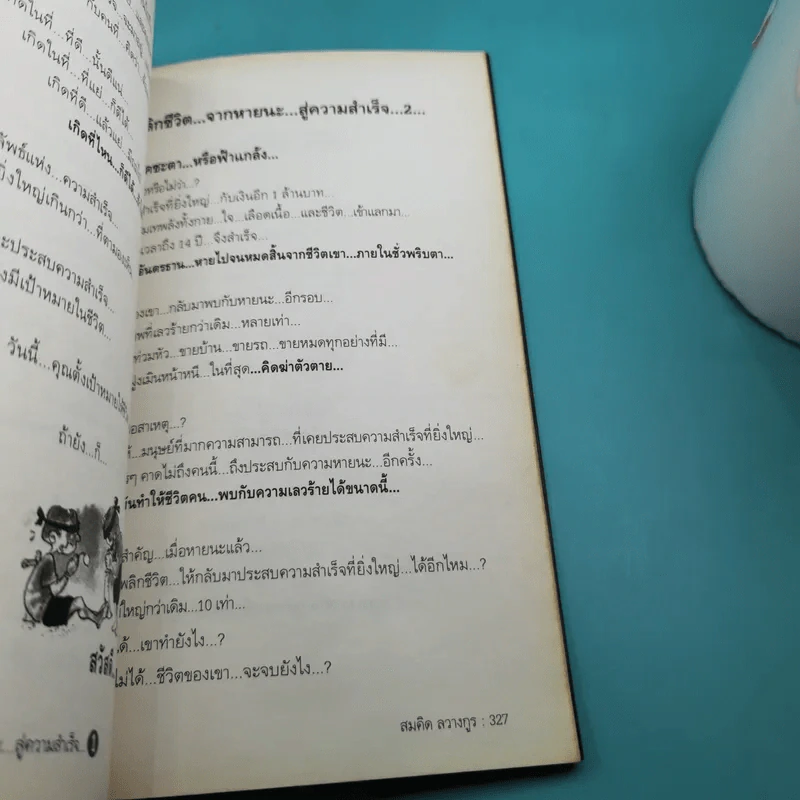 เกิดในที่...ที่ดี...นั้นดีแน่
เกิดในที่...ที่แย่...ก็ดีได้
เกิดที่ดี...แล้วแย่...
เกิดที่ไหน...ก็ดีได้
...ความสำเร็จ...
ยิ่งใหญ่เกินกว่า...
ประสบความสำเร็จ...
มีเป้าหมายในชีวิต...
วันนี้...คุณตั้งเป้าหมาย
ถ้ายัง...ก็...
สู่ความสำเร็จ...
ชีวิต...จากหายนะ...สู่ความสำเร็จ...2...
ชะตา...หรือฟ้าแกล้ง...
หรือไม่ว่า...?
สำเร็จที่ยิ่งใหญ่...กับเงินอีก 1 ล้านบาท...
เทพลังทั้งกาย...ใจ...เลือดเนื้อ...และชีวิต...เข้าแลกมา...
เวลาถึง 14 ปี...จึงสำเร็จ...
อันตรธาน...หายไปจนหมดสิ้นจากชีวิตเขา...ภายในชั่วพริบตา...
เขา...กลับมาพบกับหายนะ...อีกรอบ...
ที่เลวร้ายกว่าเดิม...หลายเท่า...
ท่วมหัว...ขายบ้าน...ขายรถ...ขายหมดทุกอย่างที่มี...
เมินหน้าหนี...ในที่สุด...คิดฆ่าตัวตาย...
สาเหตุ...?
มนุษย์ที่มากความสามารถ...ที่เคยประสบความสำเร็จที่ยิ่งใหญ่...
คาดไม่ถึงคนนี้...ถึงประสบกับความหายนะ...อีกครั้ง...
ทำให้ชีวิตคน...พบกับความเลวร้ายได้ขนาดนี้...
สำคัญ...เมื่อหายนะแล้ว...
พลิกชีวิต...ให้กลับมาประสบความสำเร็จที่ยิ่งใหญ่...ได้อีกไหม...?
ใหญ่กว่าเดิม...10 เท่า...
ได้...เขาทำยังไง...?
ไม่ได้...ชีวิตของเขา...จะจบยังไง...?
สมคิด ลวางกูร : 327